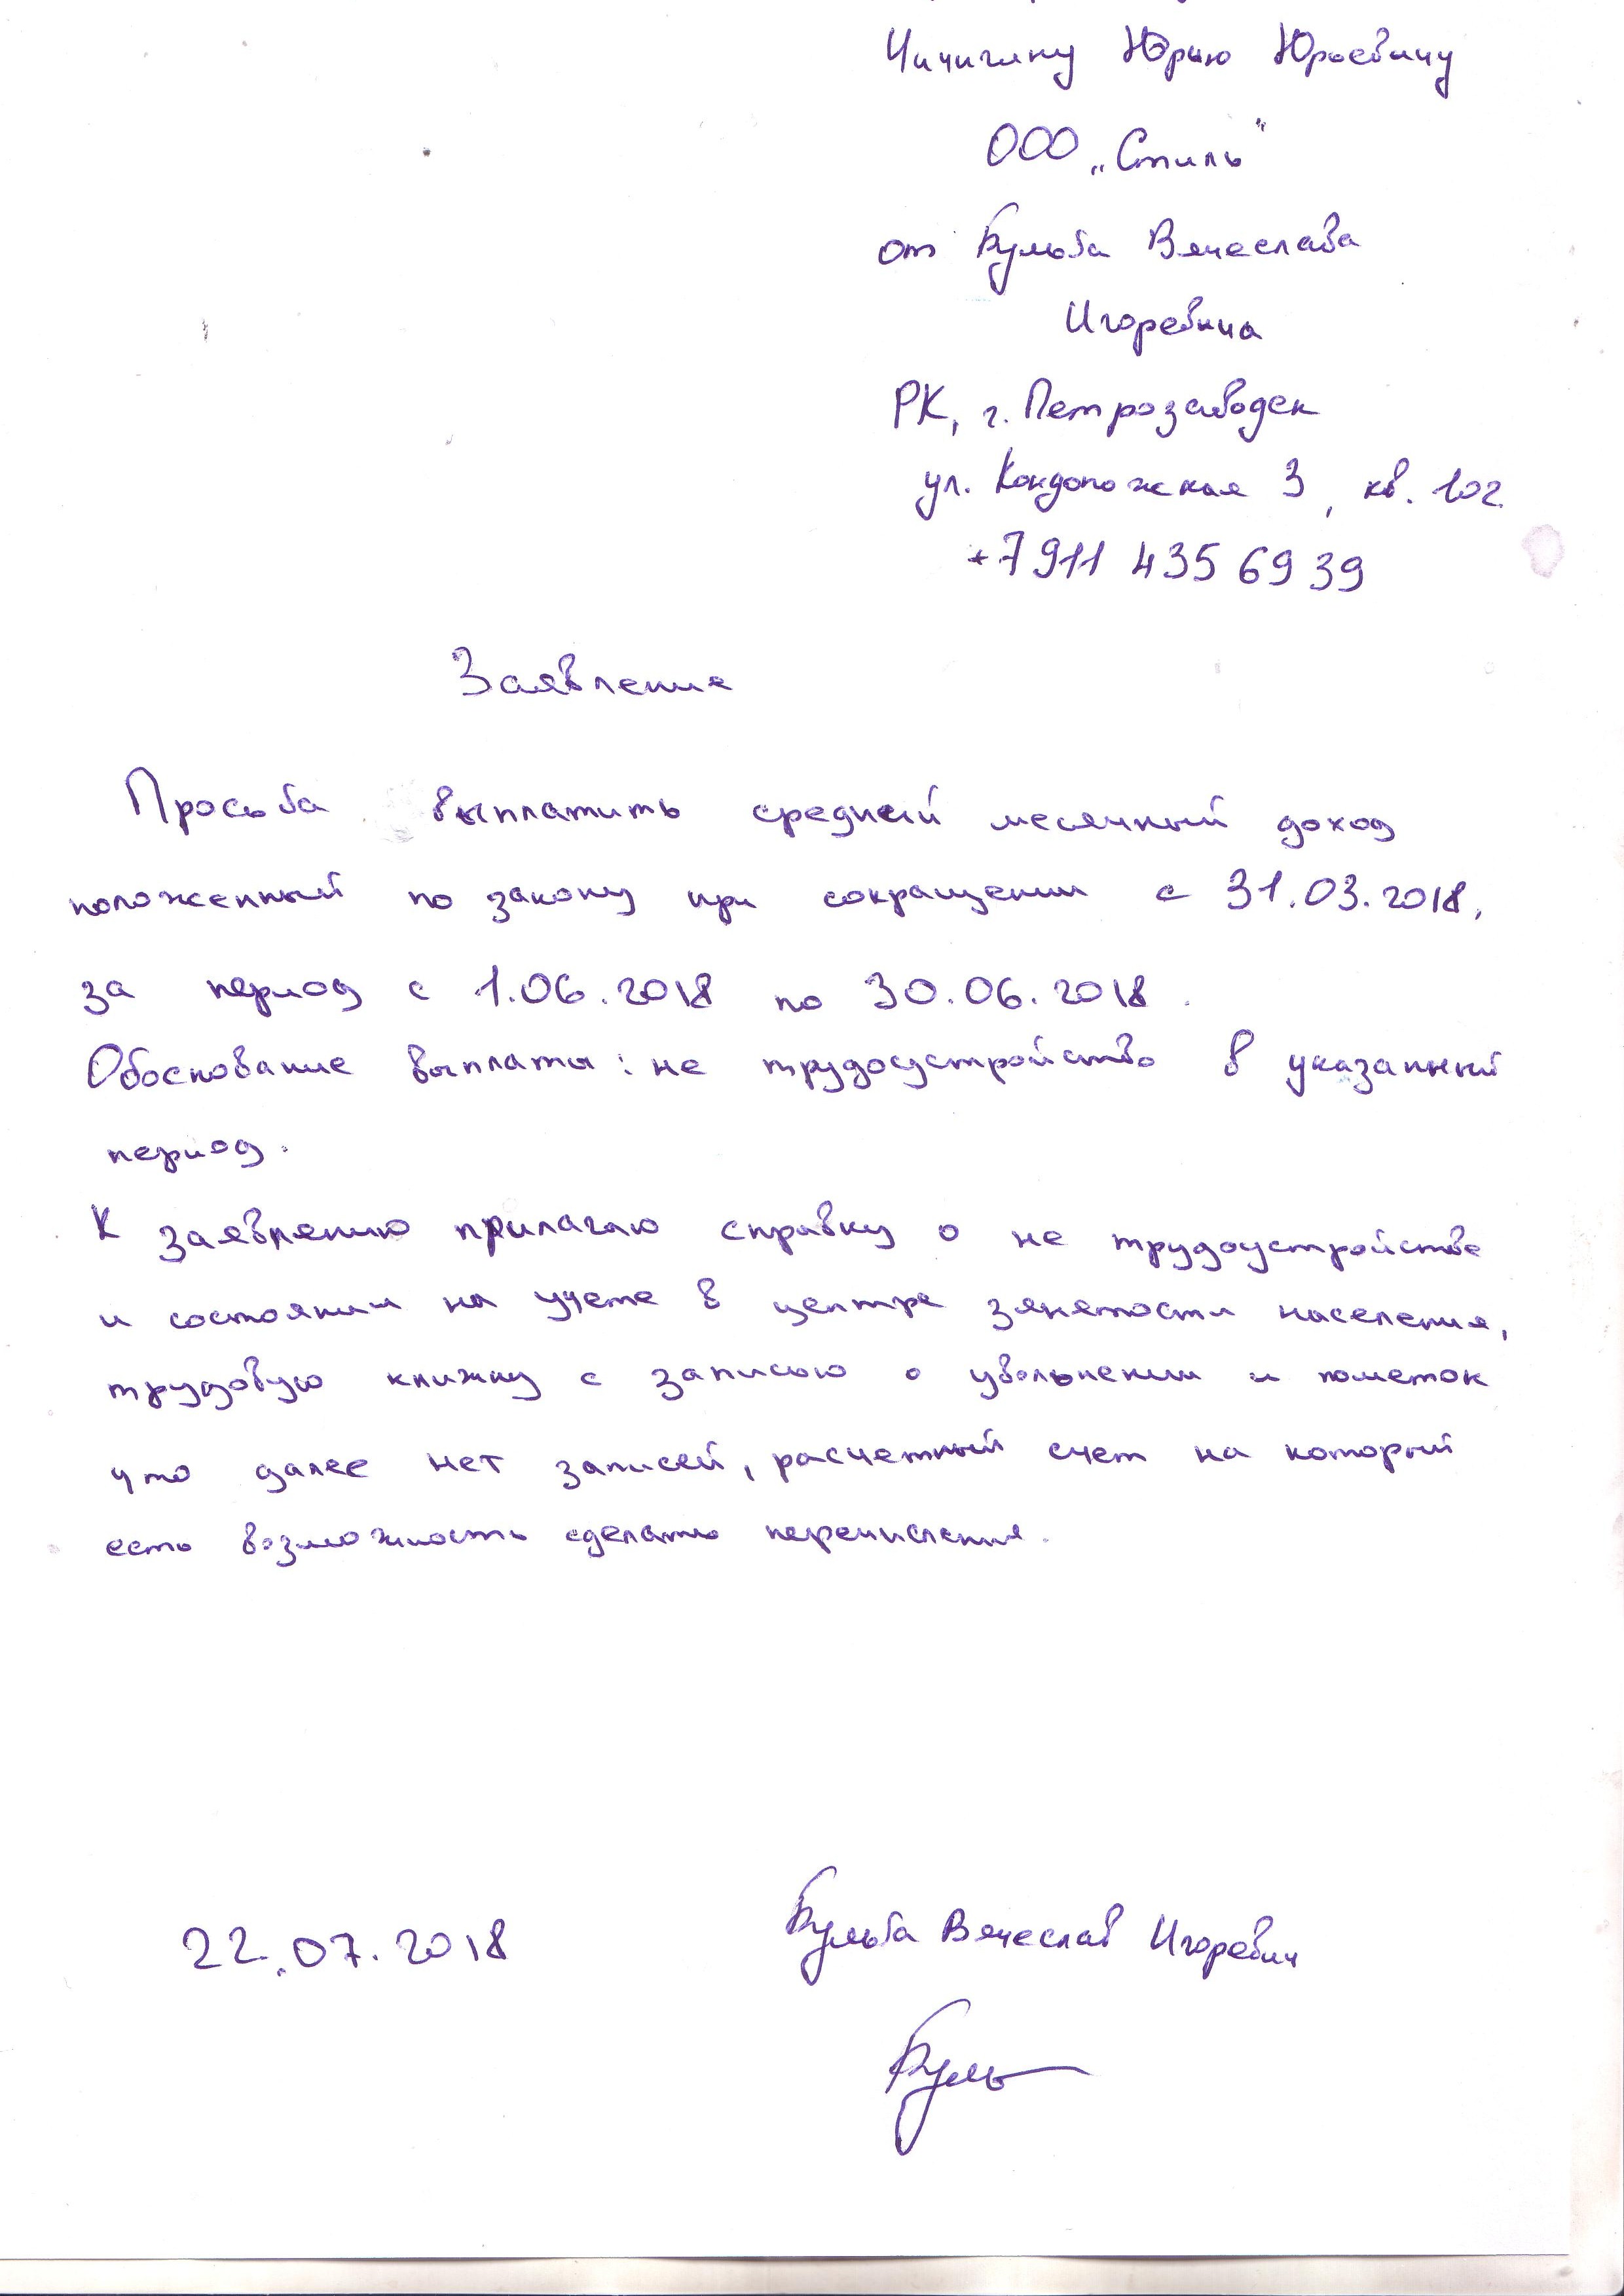 Чичигину Юрию Юрьевичу
ООО „Стиль"
от Бульба Вячеслава
Игоревича
РК, г. Петрозаводск
ул. Кондопожская 3, кв. 102
+7 911 435 69 39
Заявление
Просьба выплатить средний месячный доход
положенный по закону при сокращении с 31.03.2018,
за период с 1.06.2018 по 30.06.2018.
Обоснование выплаты: не трудоустройство в указанный
период.
К заявлению прилагаю справку о не трудоустройстве
и состоянии на учете в центре занятости населения,
трудовую книжку с записью о увольнении и пометок
что далее нет записей, расчетный счет на который
есть возможность сделать перечисления.
22.07.2018
Бульба Вячеслав Игоревич
Буль